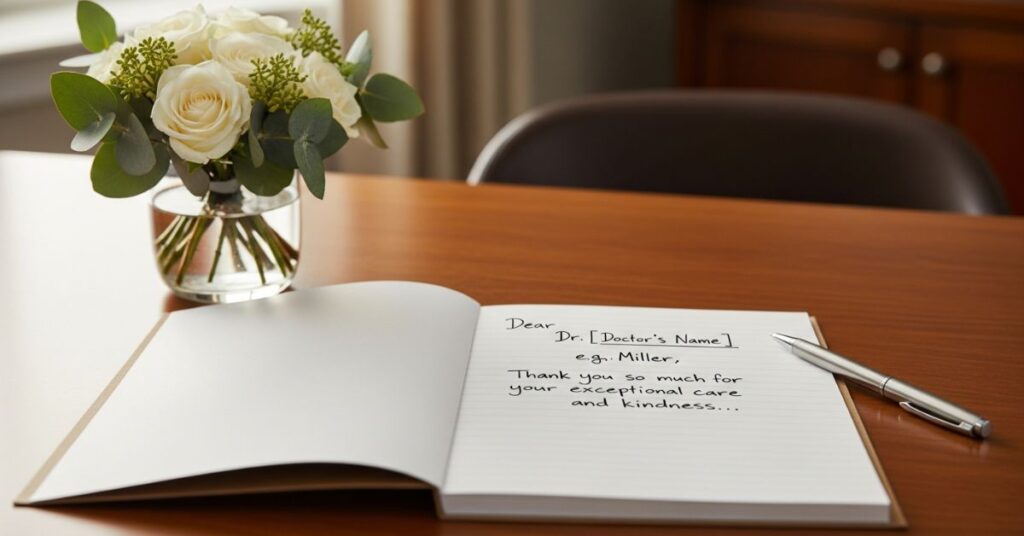 Dear
Dr. [Doctor's Name]
e.g. Miller,
Thank you so much for
your exceptional care
and kindness...